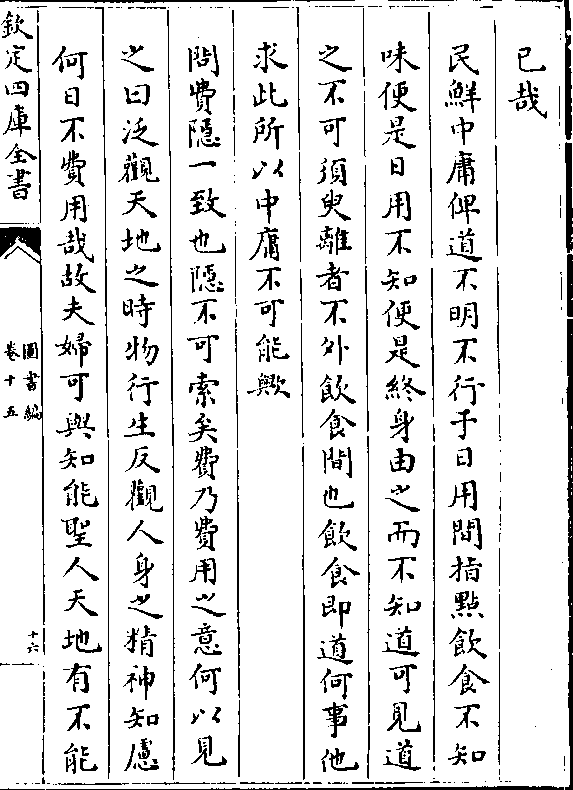 已哉
民鮮中庸俾道不明不行于日用間指點飲食不知
味便是日用不知便是終身由之而不知道可見道
之不可須臾離者不外飲食間也飲食即道何事他
求此所以中庸不可能歟
問費隱一致也隱不可索矣費乃費用之意何以見
之曰泛觀天地之時物行生反觀人身之精神知慮
何日不費用哉故夫婦可與知能聖人天地有不能
欽定四庫全書
圖書編
卷十五
十六